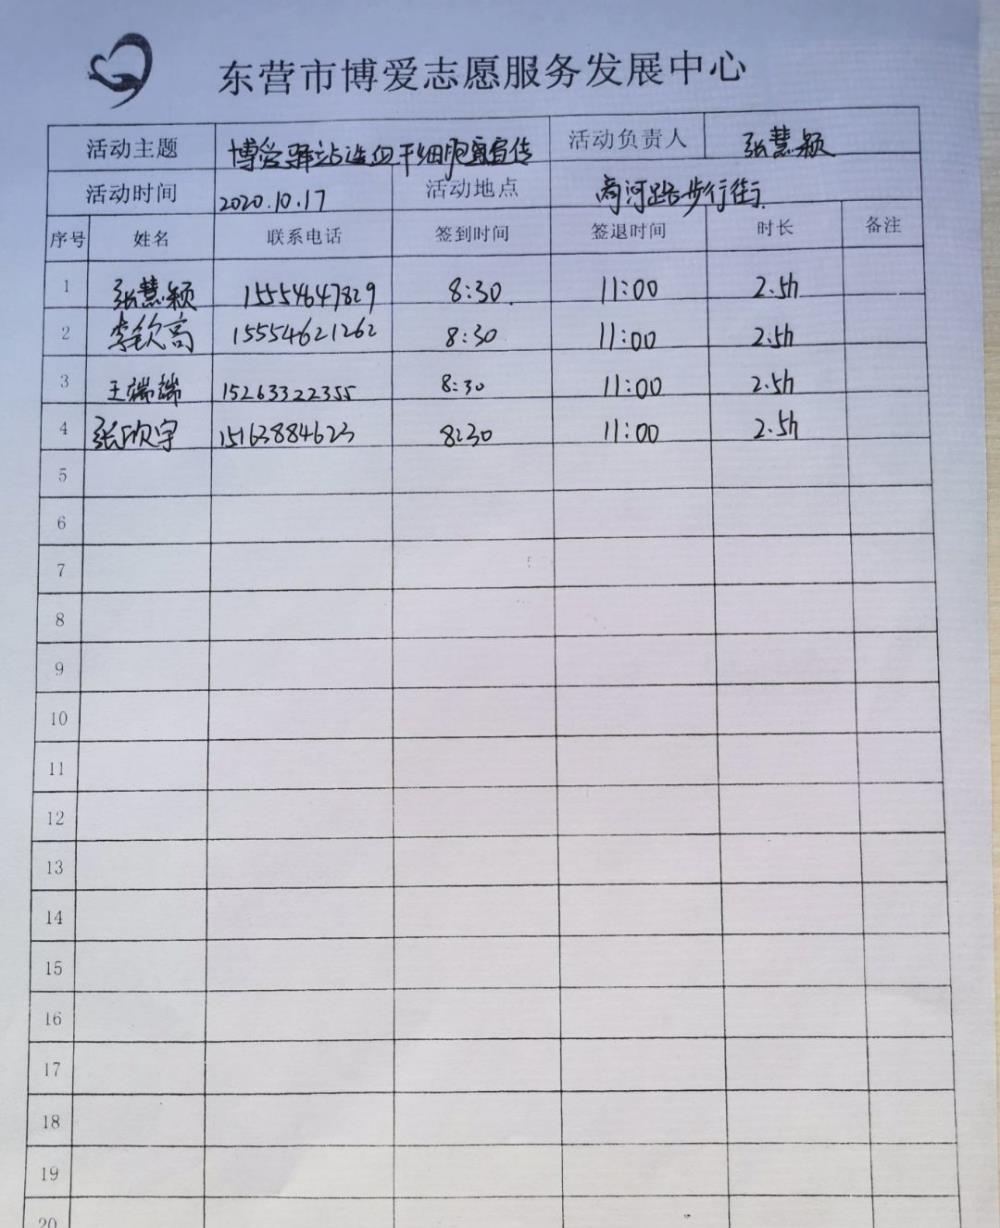 东营市博爱志愿服务发展中心
活动主题 博爱驿站造血干细胞宣传 活动负责人 张慧颖
活动时间 2020.10.17 活动地点 商河路步行街
序号 姓名 联系电话 签到时间 签退时间 时长 备注
1 张慧颖 15554647829 8:30 11:00 2.5h
2 李钦高 15554621262 8:30 11:00 2.5h
3 王端端 15263322355 8:30 11:00 2.5h
4 张欣宇 15163884623 8:30 11:00 2.5h
5
6
7
8
9
10
11
12
13
14
15
16
17
18
19
20